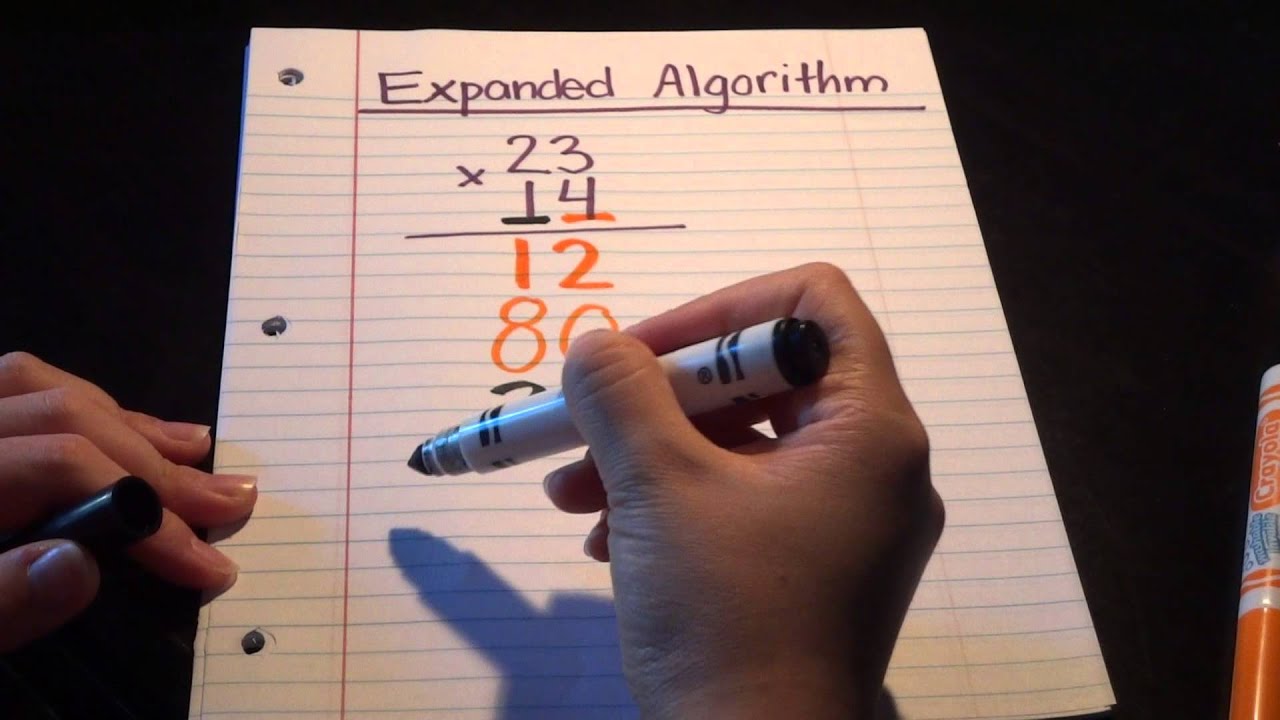 Expanded Algorithm
23
x 14
12
80
Crayola